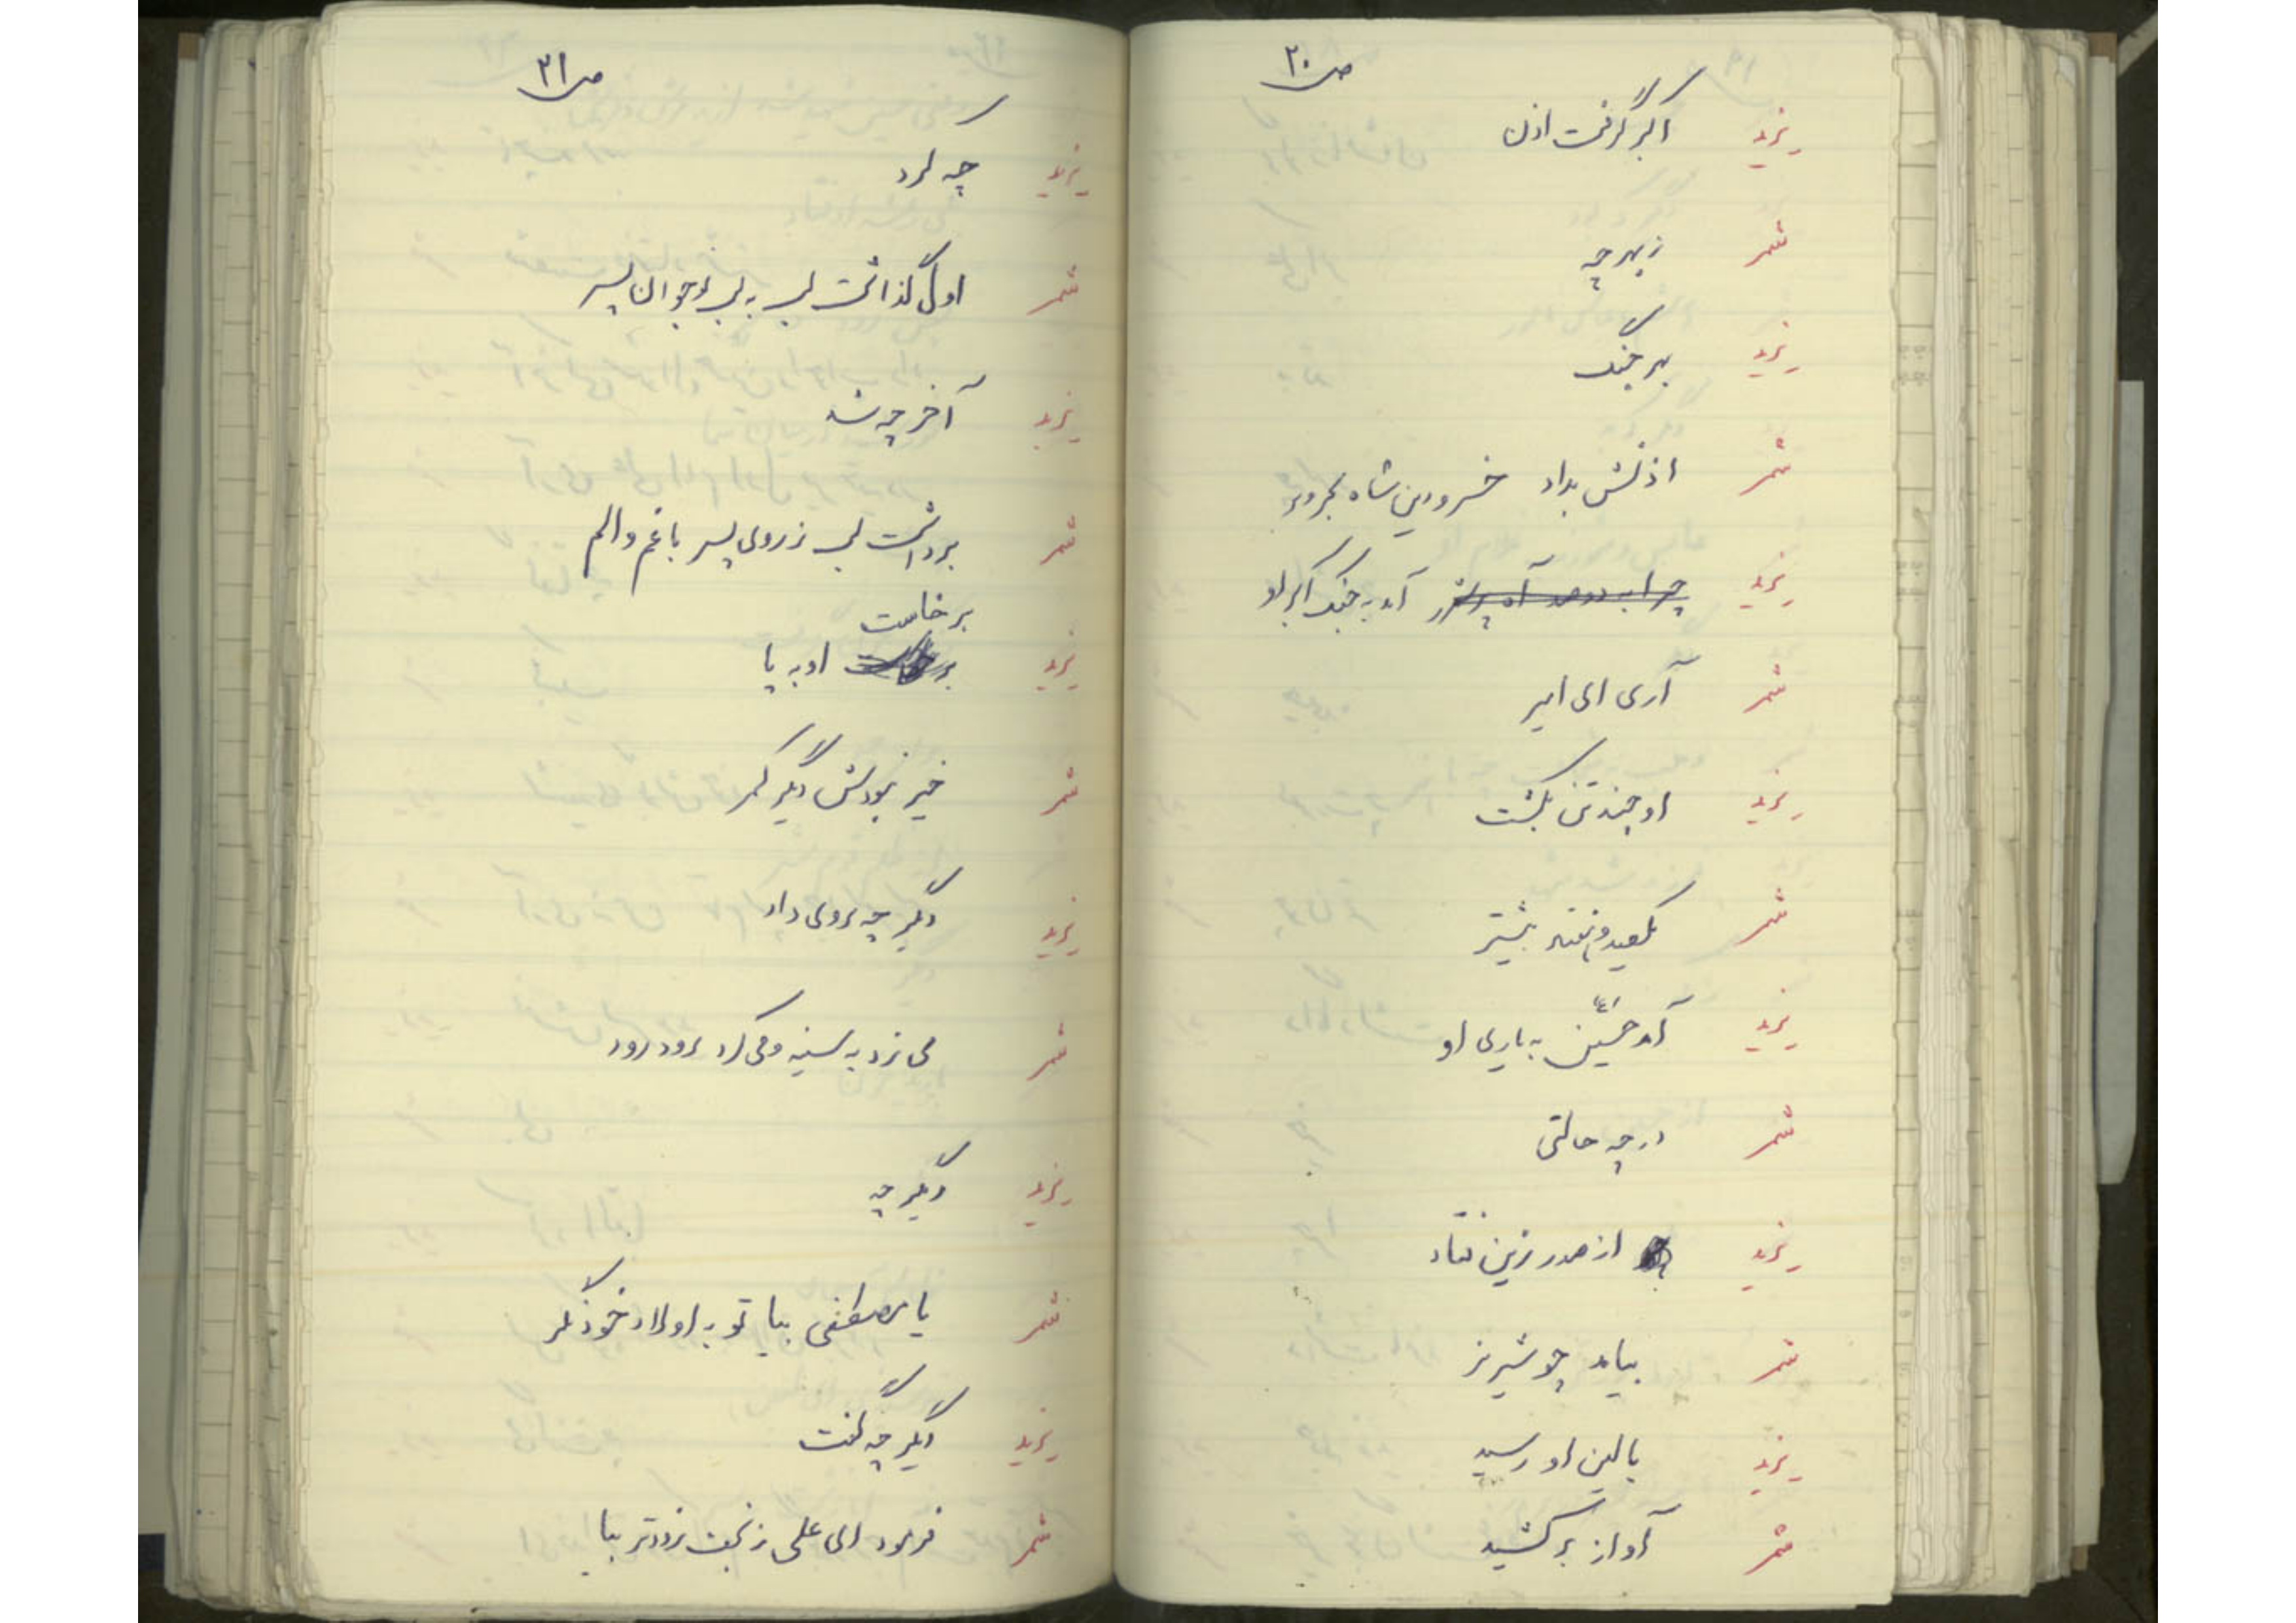 ص ۲۰
یزید اکبر گرفت اذن
شمر ز بهر چه
یزید بهر جنگ
شمر اذنش بداد خسرو دین شاه بحر و بر
یزید آمد به جنگ اکبر او
شمر آری ای امیر
یزید او چند تن بکشت
شمر یکصد و نفر بیشتر
یزید آمد حسین ع به یاری او
شمر در چه حالتی
یزید از صدر زین فتاد
شمر بیامد چو شیر نر
یزید بالین او رسید
شمر آواز بر کشید
ص ۲۱
یزید چه کرد
شمر اول گذاشت لب به لب نوجوان پسر
یزید آخر چه شد
شمر برداشت لب ز روی پسر با غم و الم
برخاست
یزید او به پا
شمر خیر نبودش دیگر کمر
یزید دیگر چه روی داد
شمر می زد به سینه و می کرد رود رود
یزید دیگر چه
شمر یا مصطفی بیا تو به اولاد خود نگر
یزید دیگر چه گفت
شمر فرمود ای علی ز نجف زودتر بیا